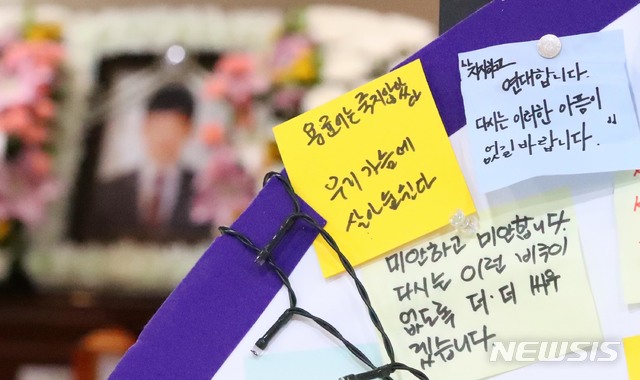 용균이는 죽지않았다
우리 가슴에
살아숨쉰다
지지하고
연대합니다.
다시는 이러한 아픔이
없길 바랍니다.
미안하고 미안합니다.
다시는 이런 비극이
없도록 더·더 싸우
겠습니다.
NEWSIS